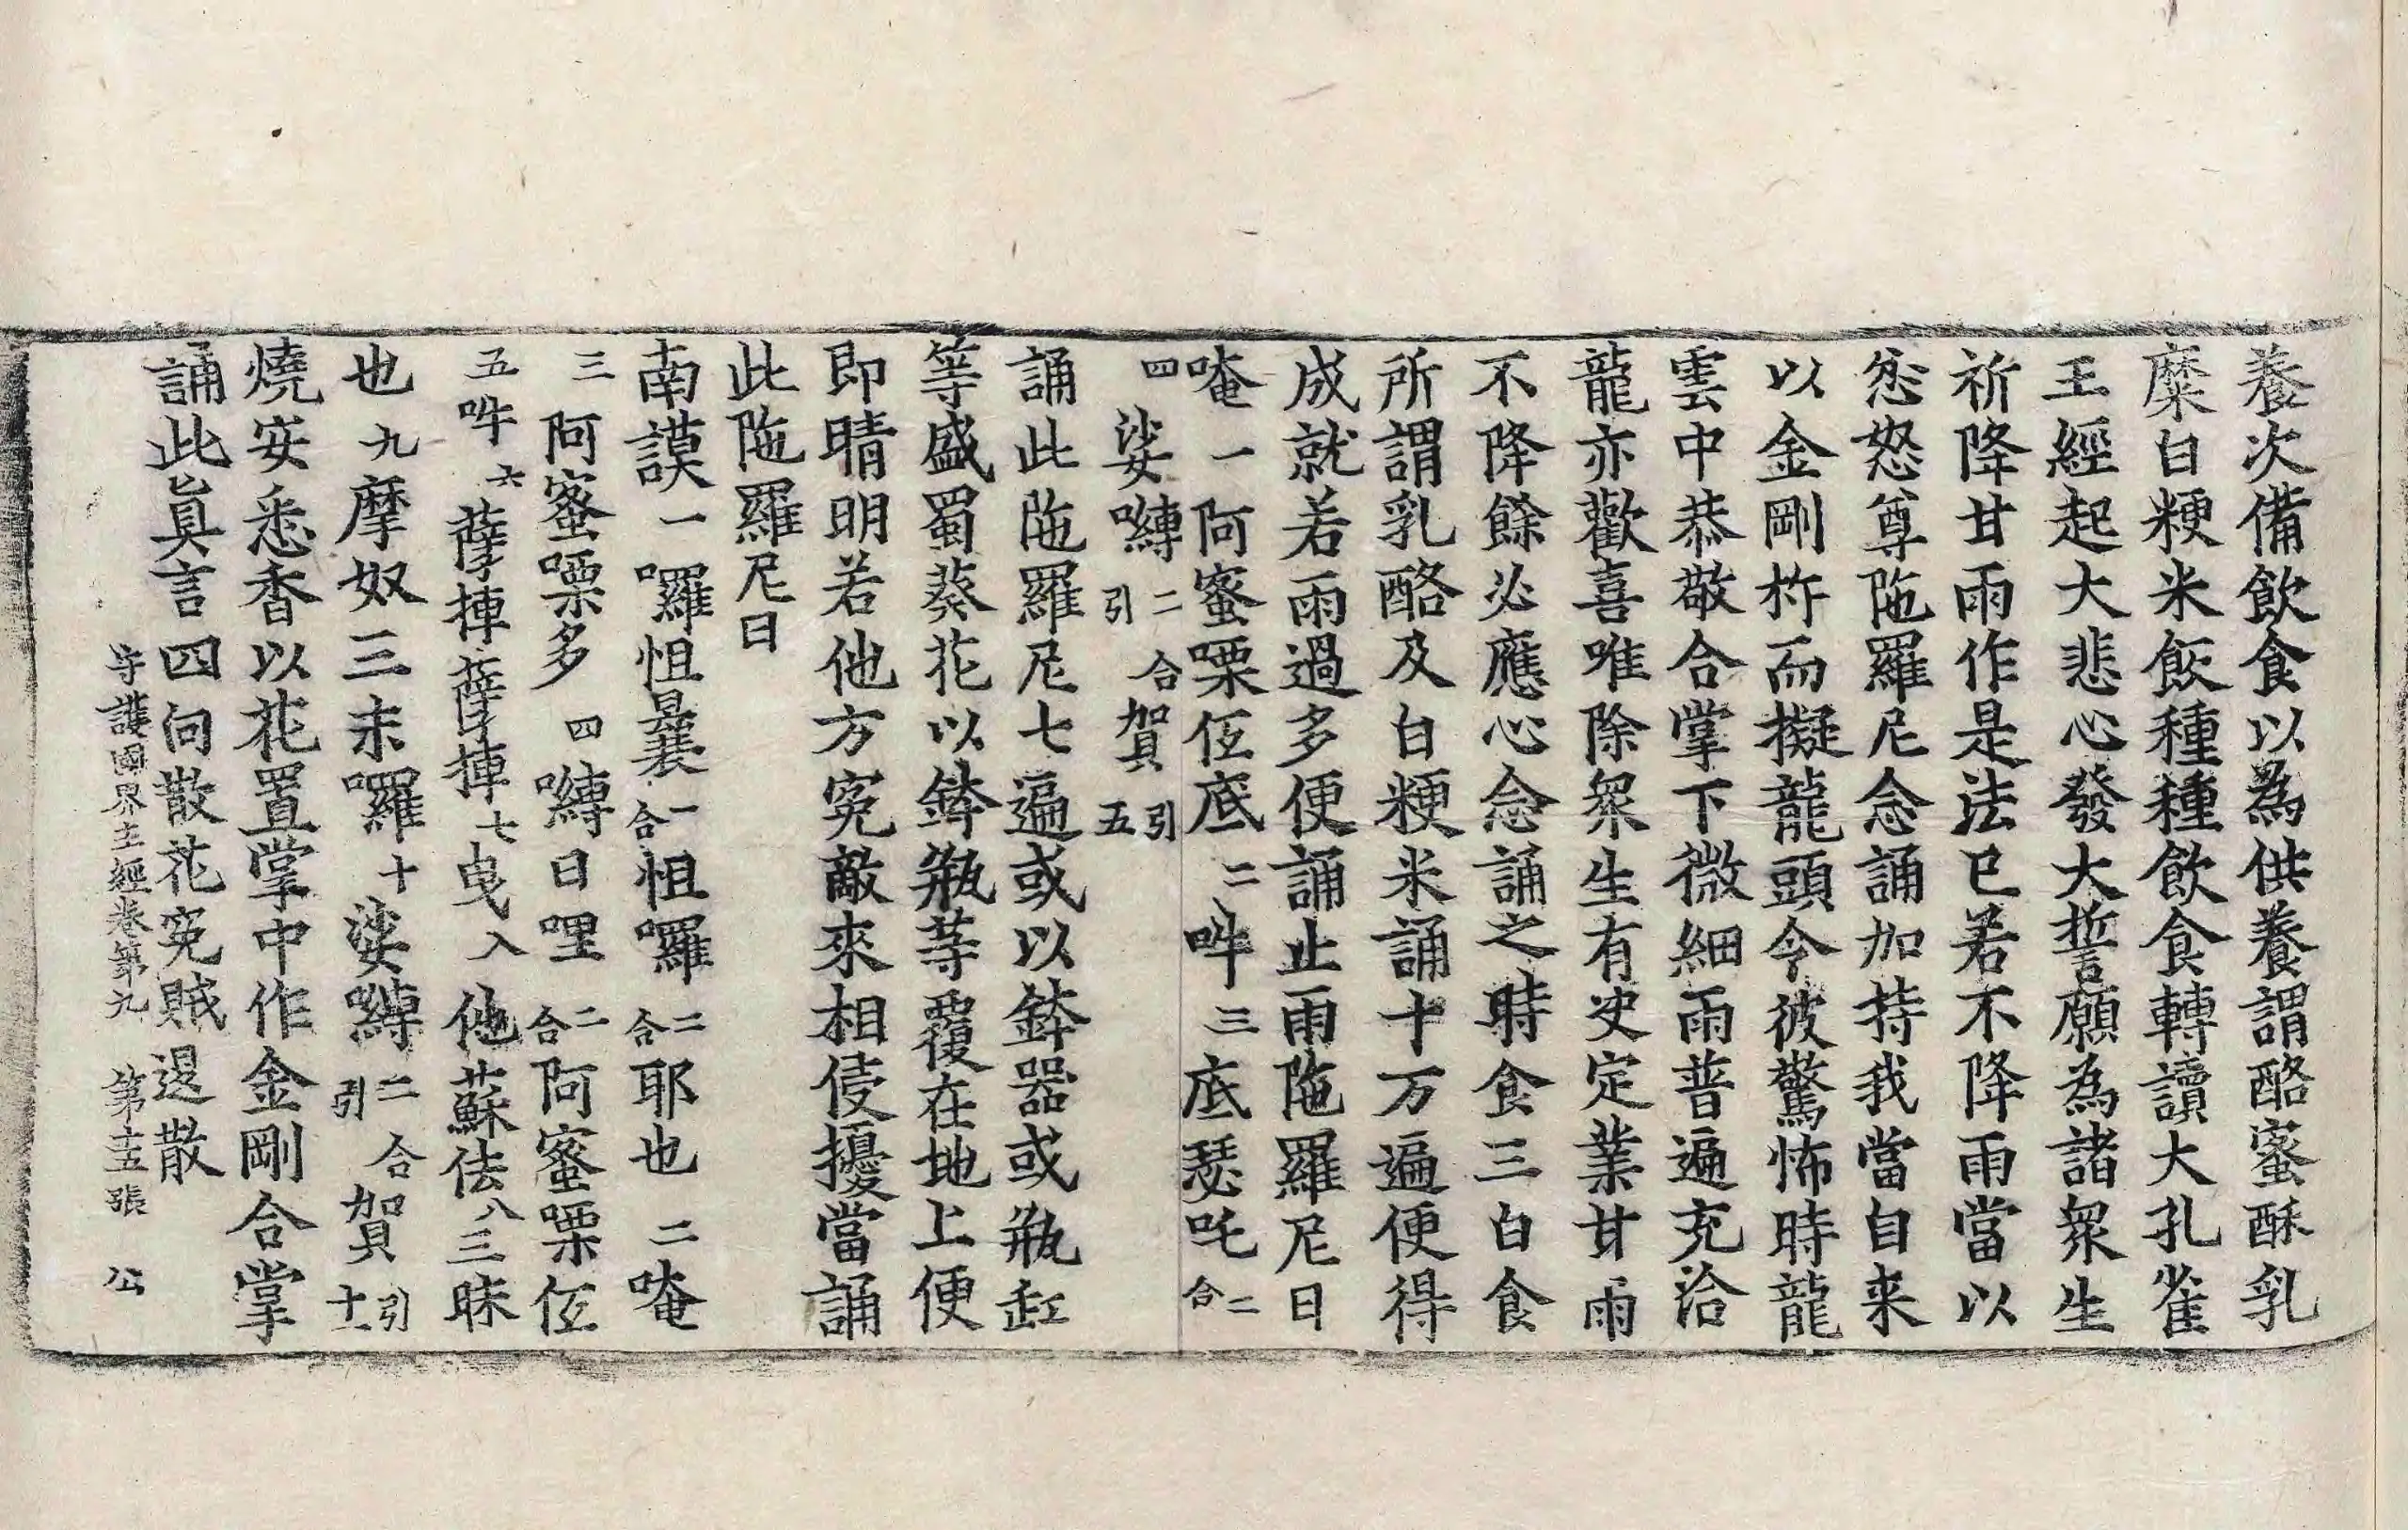 養次備飲食以為供養謂酪蜜酥乳
糜白粳米飯種種飲食轉讀大孔雀
王經起大悲心發大誓願為諸衆生
祈降甘雨作是法已若不降雨當以
忿怒尊陁羅尼念誦加持我當自来
以金剛杵而擬龍頭令彼驚怖時龍
雲中恭敬合掌下微細雨普遍充洽
龍亦歡喜唯除衆生有決定業甘雨
不降餘必應心念誦之時食三白食
所謂乳酪及白粳米誦十万遍便得
成就若雨過多便誦止雨陁羅尼曰
唵一阿蜜㗚伭底二吽三底瑟吒二合
四娑嚩二合引賀引五
誦此陁羅尼七遍或以鉢器或瓶缸
等盛蜀葵花以鉢瓶等覆在地上便
即晴明若他方寃敵來相侵擾當誦
此陁羅尼曰
南謨一囉怛曩二合怛囉二合耶也二唵
三阿蜜㗚多四嚩日哩二合阿蜜㗚伭
五吽六薩捙薩捙七曳入他蘇佉八三昧
也九摩奴三末囉十娑嚩二合引賀引十一
燒安悉香以花置掌中作金剛合掌
誦此眞言四向散花寃賊退散
守護國界主經卷第九 第十五張 公